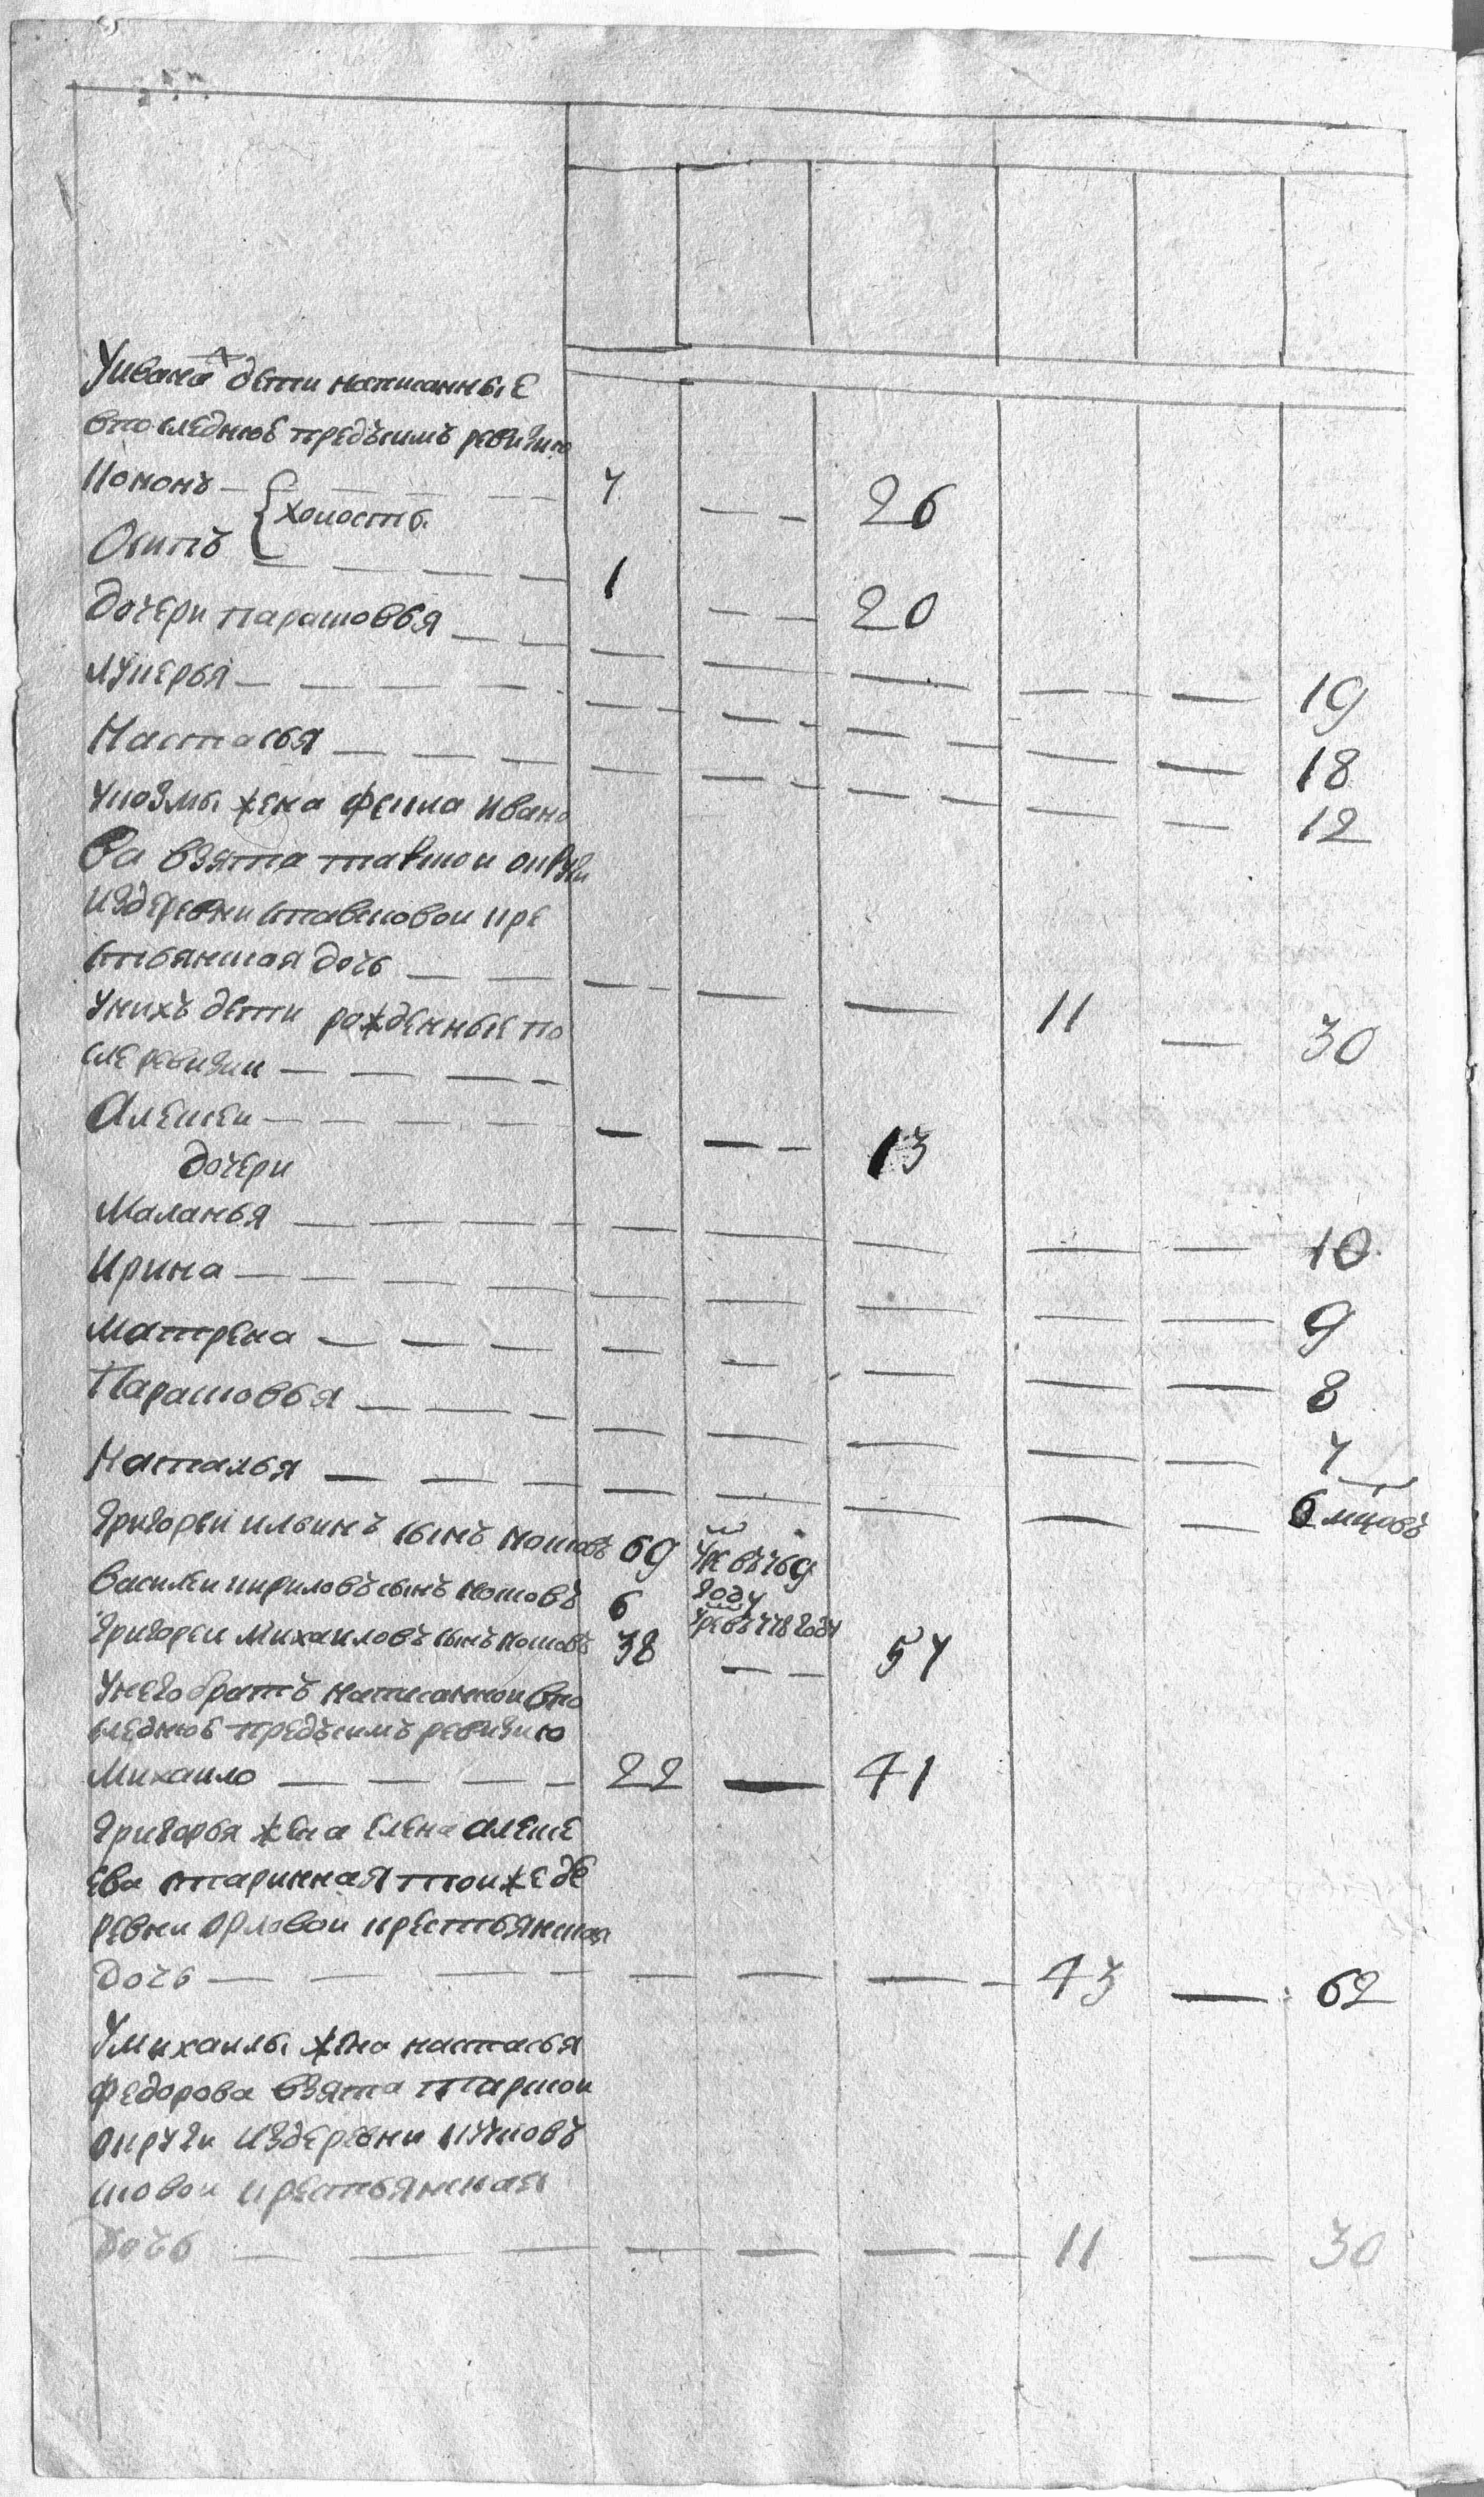 У ивана дети написанные
впоследнюю предъсимъ ревизию
Кононъ — 7 — — 26
{холосты
Осипъ — 1 — — 20
дочери парасковья — 19
лукерья — 18
Настасья — 12
жена Фекла Ивано
ва взята тарской округи
издеревни кре
стьянская дочь — 11 — 30
Унихъ дети рожденные по
сле ревизии —
Алексеи — 13
дочери
Маланья — 10
Ирина — 9
матрена — 8
Парасковья — 7
Наталья — 6 мцовъ
григореи ильинъ сынъ 69
году
василеи кириловъ сынъ 6
григореи михаиловъ сынъ 38 — — 57
Унего братъ написаннои впо
следнюю предъсимъ ревизию
Михаило — 22 — 41
григорья жена елена алексе
ева старинная тоиже де
ревни орловои крестьянская
дочь — 43 — 62
Умихаилы жена настасья
федорова взята тарскои
округи издеревни
крестьянская
дочь — 11 — 30